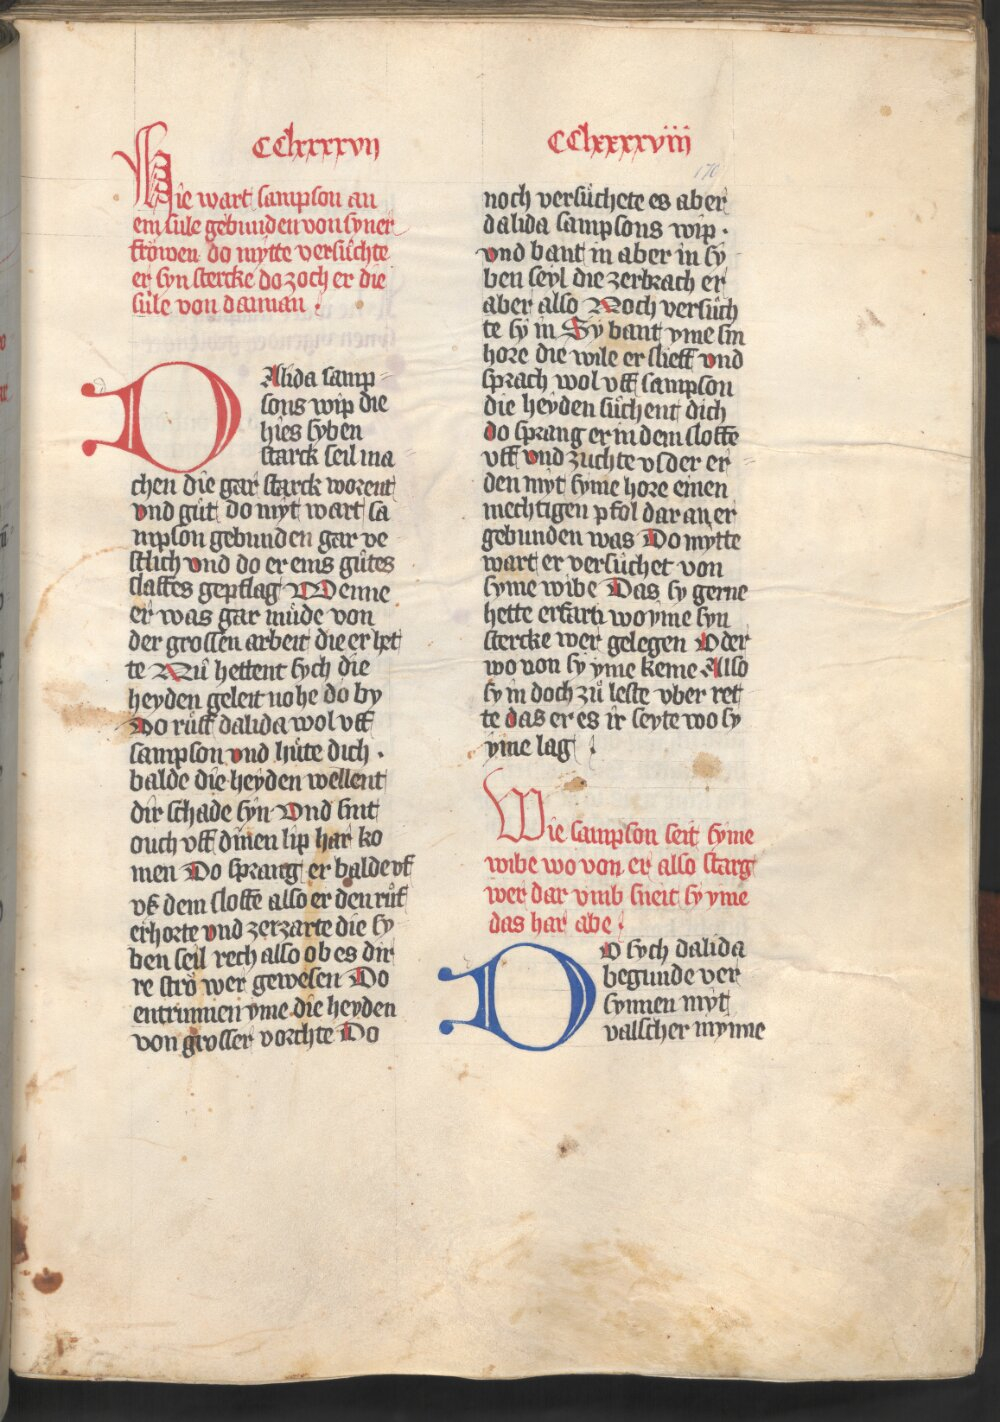 CClxxxxvii
Hie wart sampson an
em sule gebunden von syner
frowen do mytte versůchte
er syn stercke do zoch er die
sůle von dannan .
DAlida samp-
sons wip die
hies syben
starck seil ma
chen die gar starck worent
vnd gůt do myt wart sa
mpson gebunden gar ve
stlich vnd do er eins gůtes
slaffes gepflag Wenne
er was gar můde von
der grossen arbeit die er het
te Nů hettent sych die
heyden geleit nohe do by
Do růff dalida wol vff
sampson vnd hůte dich .
balde die heyden wellent
dir schade syn Vnd sint
ouch vff dinen lip har ko
men Do sprang er balde vf
vs dem sloffe also er den růf
erhorte vnd zerzarte die sy
ben seil rech also ob es dir
re stro wer gewesen Do
entrunnen yme die heyden
von grosser vorchte Do
CClxxxxviii
170
noch versůchete es aber
dalida sampsons wip .
vnd bant in aber in sy
ben seyl die zerbrach er
aber also Noch versůch
te sy in Sy bant yme sin
hore die wile er slieff vnd
sprach wol vff sampson
die heyden sůchent dich
do sprang er in dem sloffe
vff vnd zuchte vsder er-
den myt syme hore einen
mechtigen pfol dar an er
gebunden was Do mytte
wart er versůchet von
syme wibe Das sy gerne
hette erfarn wo yme syn
stercke wer gelegen Oder
wo von sy yme keme Also
sy in doch zů leste vber ret
te das er es ir seyte wo sy
yme lag
Wie sampson seit syme
wibe wo von er also starg
wer dar vmb sneit sy yme
das har abe .
DO sych dalida
begunde ver
synnen myt
valscher mynne